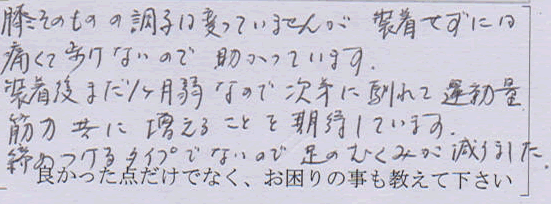 膝そのものの調子は変っていませんが 装着せずには
痛くて歩けないので 助かっています.
装着後まだ1ヶ月弱なので 次第に馴れて 運動量
筋力 共に 増えることを期待しています.
締めつけるタイプでないので 足のむくみが減りました.
良かった点だけでなく、お困りの事も教えて下さい